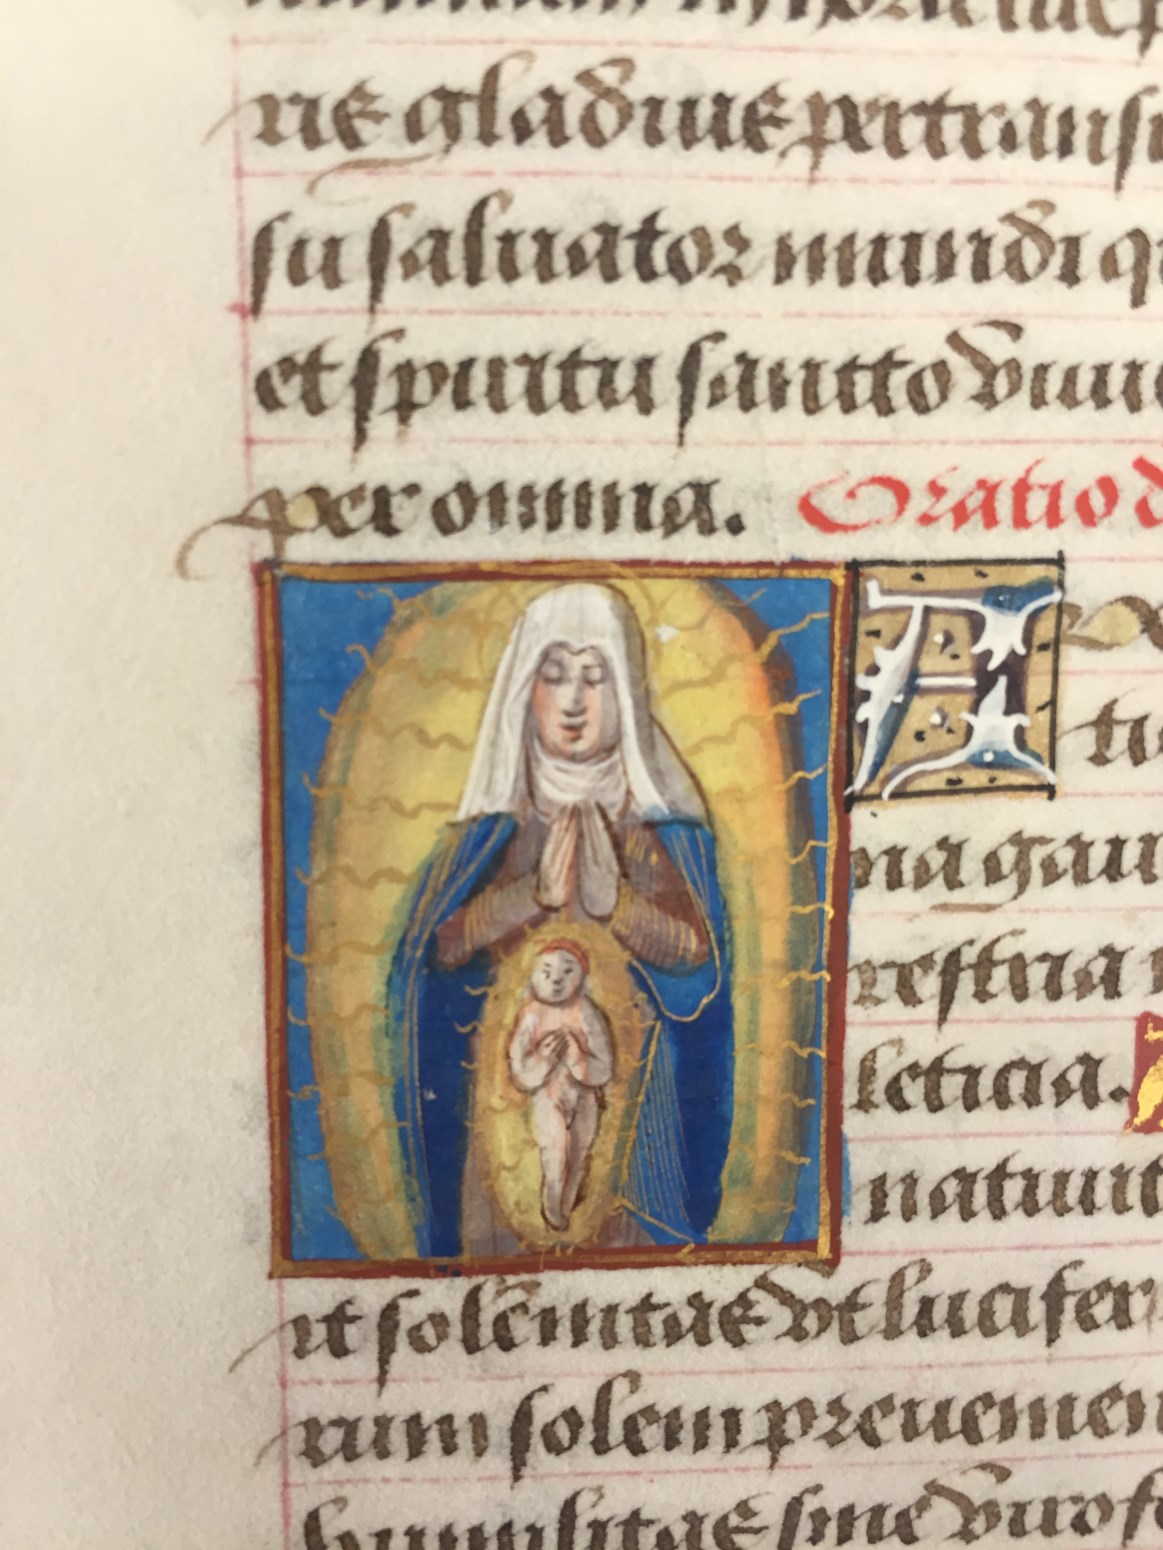 ris gladius pertransi
su saluator mundi q
et spiritu sancto viui
per omnia. Oratio d
A
na gau
restria
leticia.
natiuit
it solēnitas vt lucifer
rum solem preuenien
humilitas sine viro f